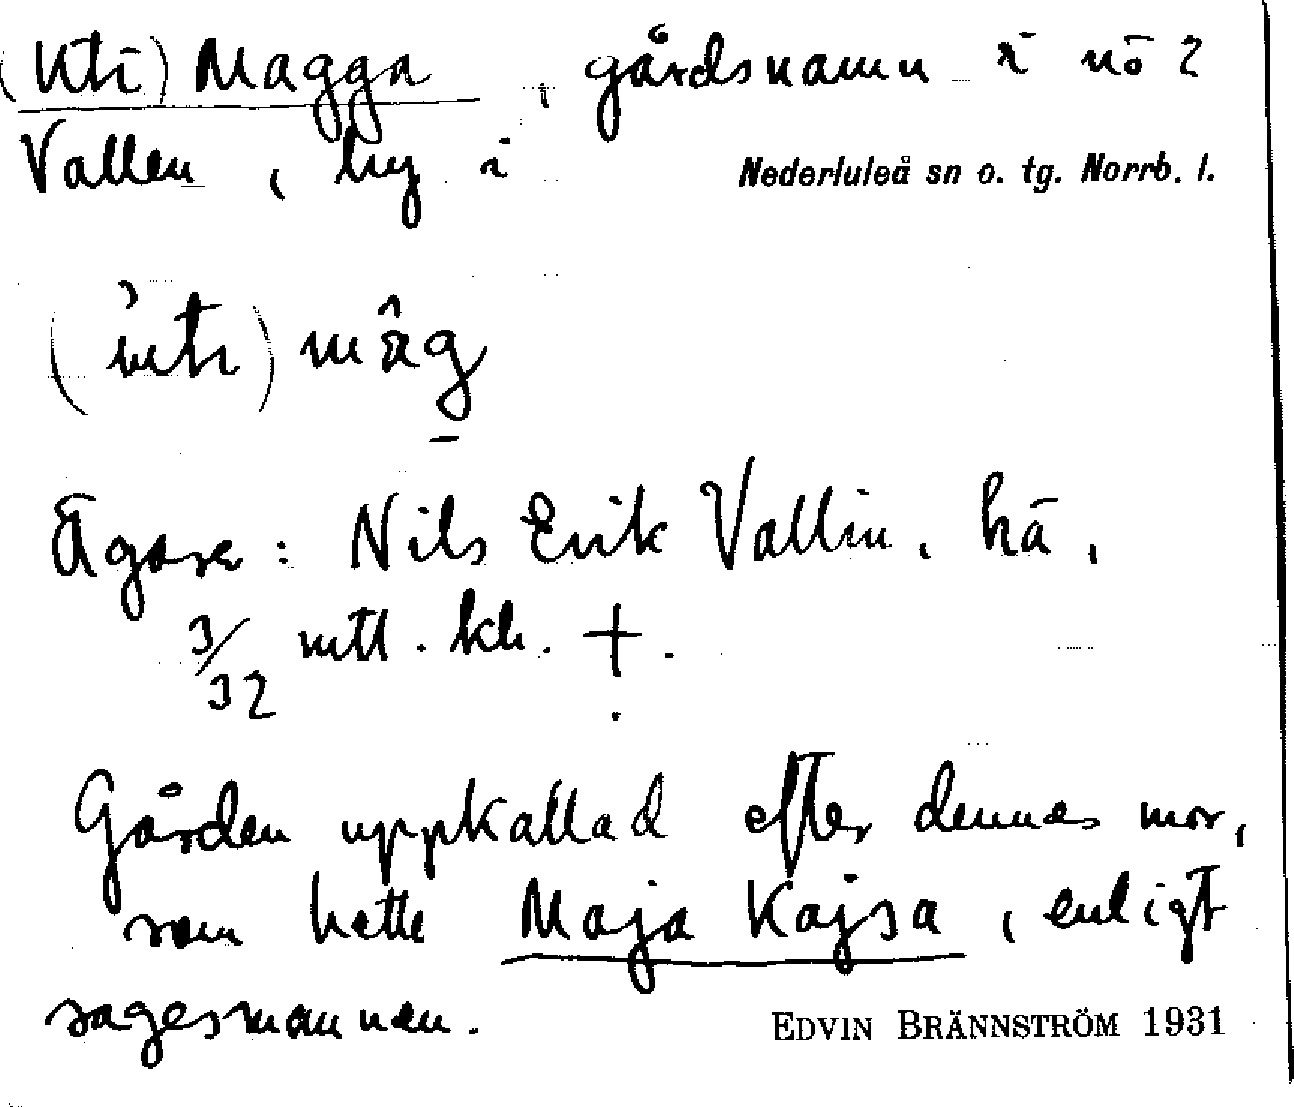 (Uti) Magga, gårdsnamn i nö?
Vallen, by i Nederluleå sn o. tg. Norrb. l.
(ùti) mâg
Ägare: Nils Erik Vallin, hä,
3/32 mtl. kh. +.
Gården uppkallad efter dennes mor,
som hette Maja Kajsa, enligt
sagesmannen. EDVIN BRÄNNSTRÖM 1931